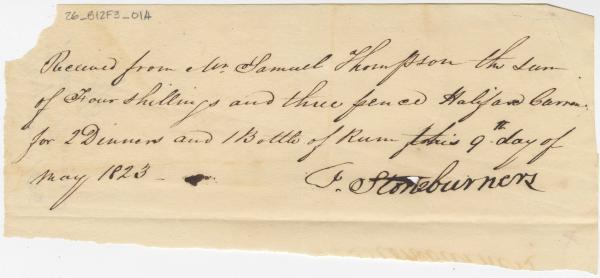 26_B12F3_01A
Received from Mr. Samuel Thompson the sum
of Four shillings and three pence Halifax Curren.
for 2 Dinners and 1 Bottle of Rum this 9th day of
May 1823
J. Stoneburners